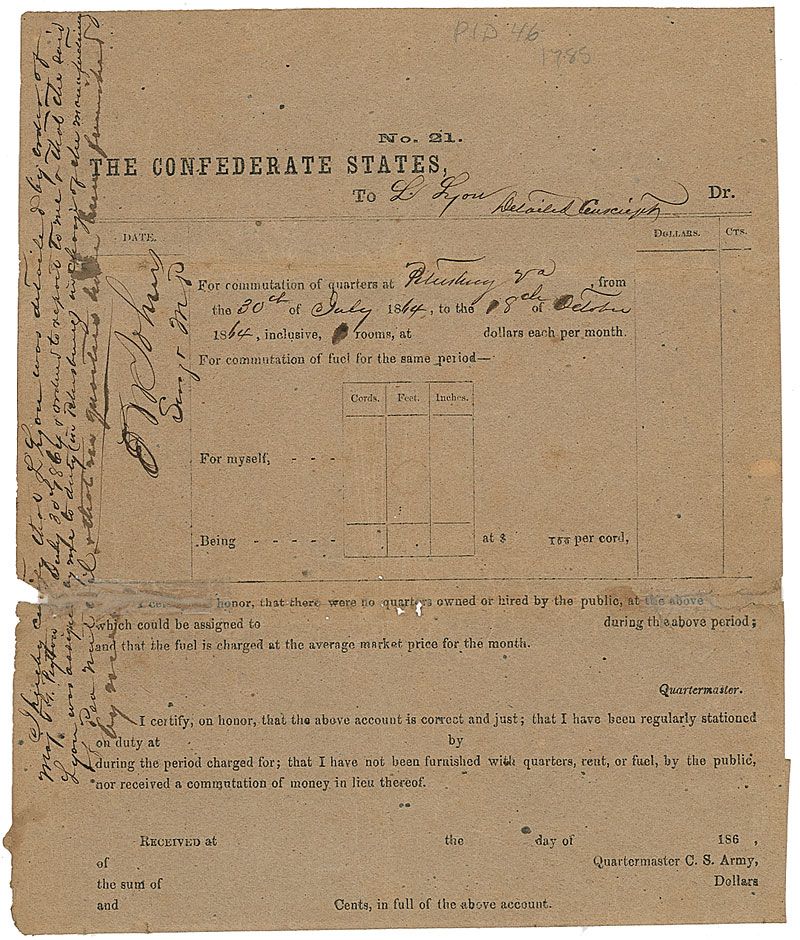 PID 46
1785
No. 21.
THE CONFEDERATE STATES,
To L. Lyon Detailed Conscript Dr.
DATE. DOLLARS. CTS.
For commutation of quarters at Petersburg Va, from
the 30th of July 1864, to the 8th of October
1864, inclusive, rooms, at dollars each per month.
For commutation of fuel for the same period—
Cords. Feet. Inches.
For myself, - - -
Being - - - - - at $ 100 per cord,
I certify honor, that there were no quarters owned or hired by the public, at the above
which could be assigned to during the above period;
and that the fuel is charged at the average market price for the month.
Quartermaster.
I certify, on honor, that the above account is correct and just; that I have been regularly stationed
on duty at by
during the period charged for; that I have not been furnished with quarters, rent, or fuel, by the public,
nor received a commutation of money in lieu thereof.
RECEIVED at the day of 186 ,
of Quartermaster C. S. Army,
the sum of Dollars
and Cents, in full of the above account.
I hereby certify that L Lyon was detailed by order of
Maj July 30th 1864 & ordered to report to me & that the said
Lyon was assigned by me to duty in Petersburg in charge of the manufacturing
of & that no quarters have been furnished
by me